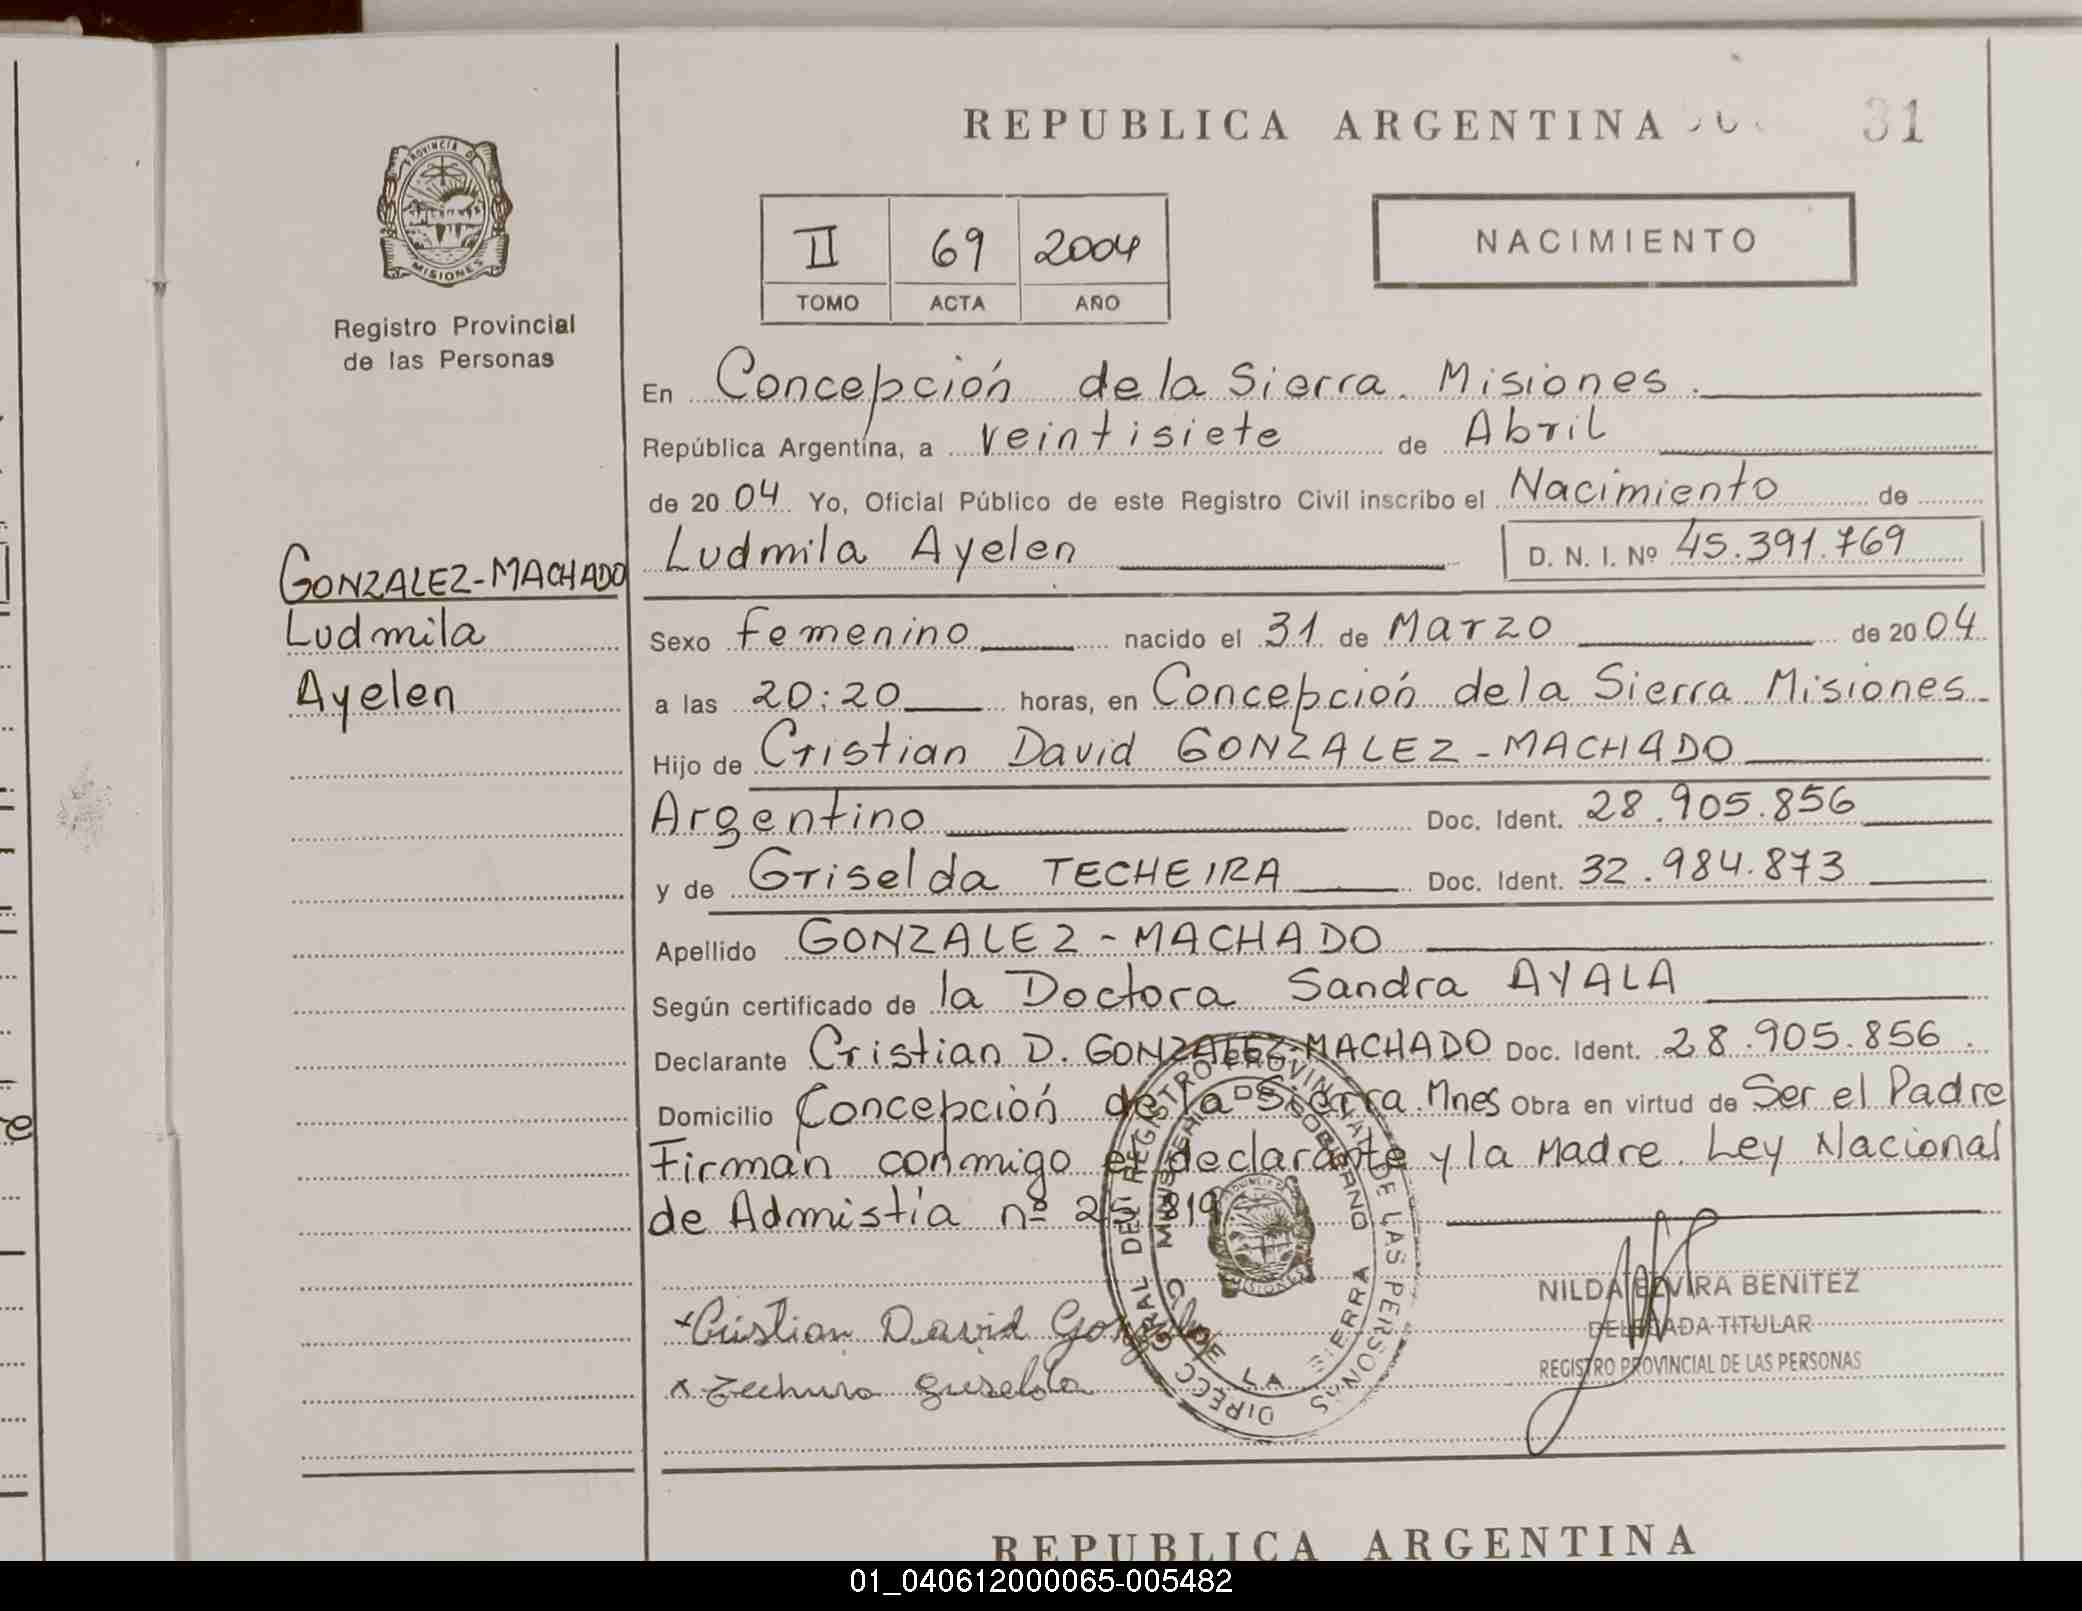 REPUBLICA ARGENTINA
31
PROVINCIA DE
MISIONES
Registro Provincial
de las Personas
II 69 2004
TOMO ACTA AÑO
NACIMIENTO
En Concepción de la Sierra. Misiones.
República Argentina, a veintisiete de Abril
de 2004 Yo, Oficial Público de este Registro Civil inscribo el Nacimiento de
Ludmila Ayelen D. N. I. Nº 45.391.769
GONZALEZ-MACHADO
Ludmila
Ayelen
Sexo Femenino nacido el 31 de Marzo de 2004
a las 20:20 horas, en Concepción de la Sierra Misiones
Hijo de Cristian David GONZALEZ-MACHADO
Argentino Doc. Ident. 28.905.856
y de Griselda TECHEIRA Doc. Ident. 32.984.873
Apellido GONZALEZ-MACHADO
Según certificado de la Doctora Sandra AYALA
Declarante Cristian D. GONZALEZ-MACHADO Doc. Ident. 28.905.856.
Domicilio Concepción de la Sierra. Mnes Obra en virtud de Ser el Padre
Firman conmigo el declarante y la Madre. Ley Nacional
de Admistía nº 25.819
DIRECC. GRAL DEL REGISTRO PROVINCIAL DE LAS PERSONAS
MINISTERIO DE GOBIERNO
C. DE LA SIERRA
Cristian David
NILDA ELVIRA BENITEZ
DELEGADA TITULAR
REGISTRO PROVINCIAL DE LAS PERSONAS
REPUBLICA ARGENTINA
01_040612000065-005482